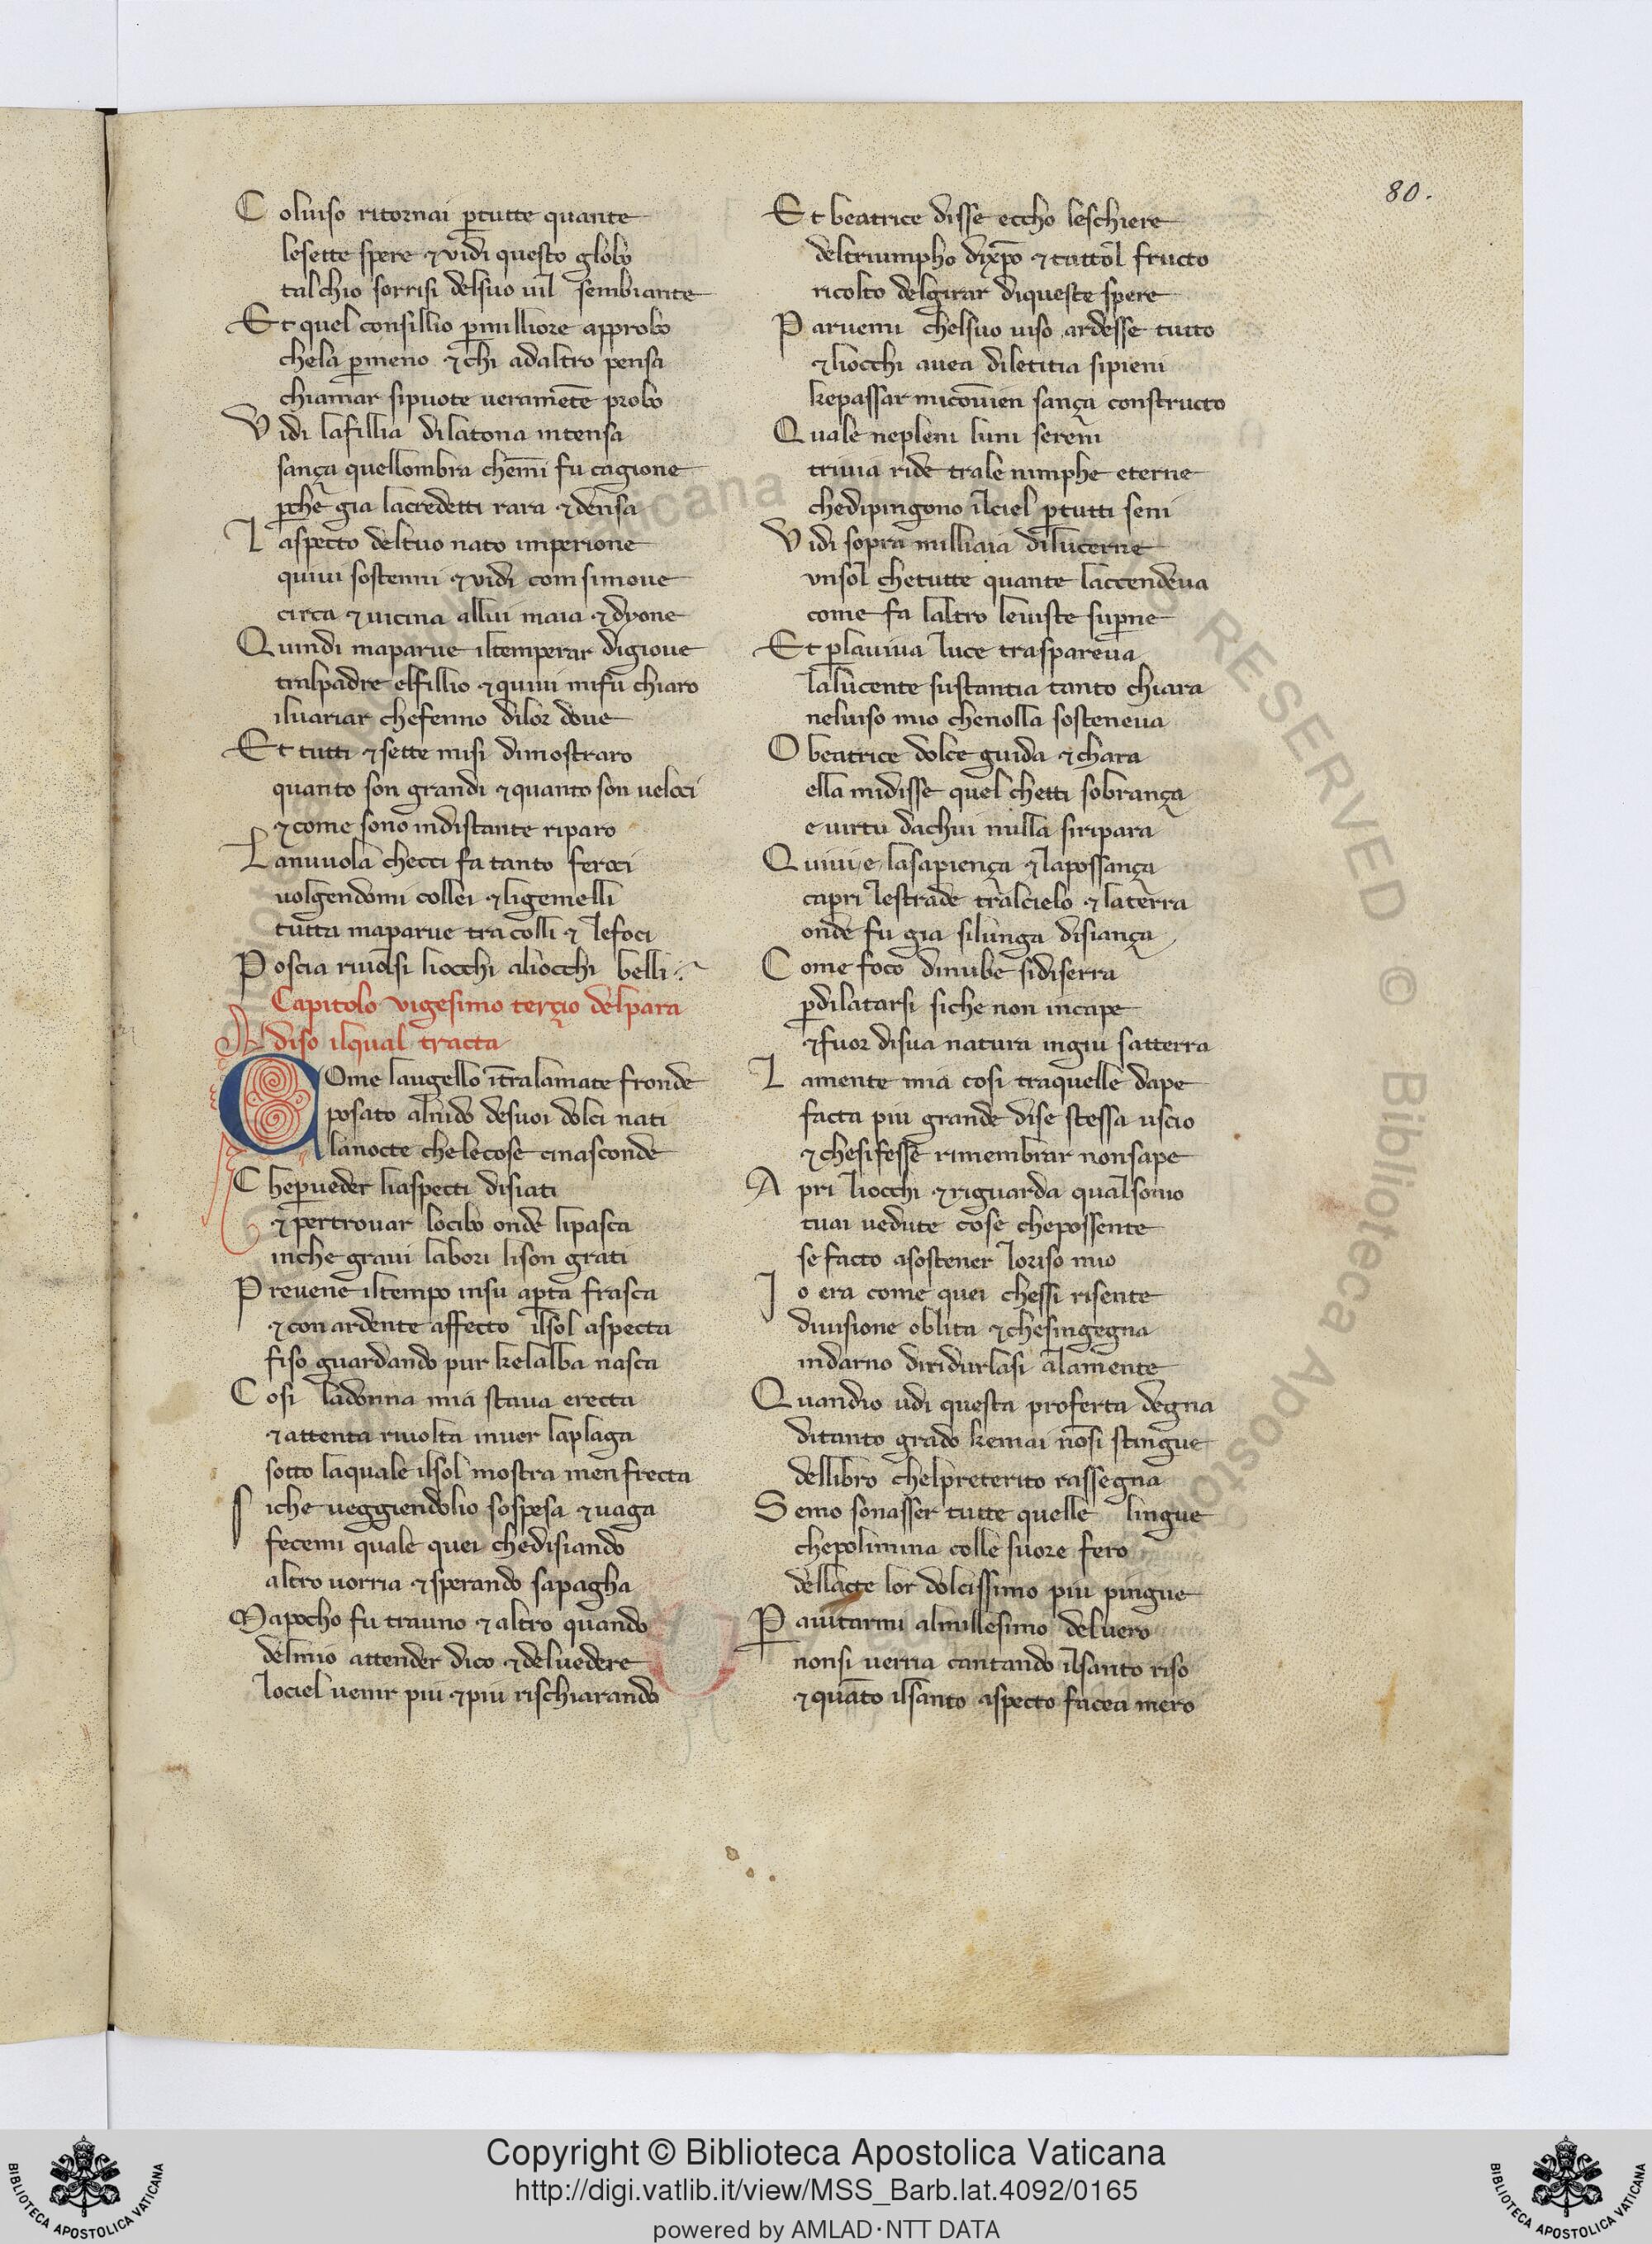 80.
Coluiso ritornai ꝑtutte quante
lesette spere ⁊ vidi questo globo
tal chio sorrisi delsuo uil sembiante
Et quel consillio ꝑmilliore approbo
chela ꝑmeno ⁊ chi adaltro pensa
chiamar sipuote ueram̅ete probo
Vidi lafillia dilatona intensa
sança quellombra chem̅i fu cagione
ꝑche gia lacredetti rara ⁊ densa
Laspecto deltuo nato imperione
quiui sostenni ⁊ vidi com simoue
circa ⁊ uicina allui maia ⁊ dyone
Quindi maparue iltemperar digioue
tralpadre elfillio ⁊ quiui mifu chiaro
iluariar chefenno dilor doue
Et tutti ⁊ sette misi dimostraro
quanto son grandi ⁊ quanto son ueloci
⁊ come sono indistante riparo
Lanuuola checci fa tanto feroci
uolgendomi collei ⁊ ligemelli
tutta maparue tra colli ⁊ lefoci
Poscia riuolsi liocchi aliocchi belli
Capitolo vigesimo terçio delpara
diso ilqual tracta
COme laugello it̅ralamate fronde
posato alnido desuoi dolci nati
lanocte chelecose cinasconde
Cheꝑueder liaspecti disiati
⁊ pertrouar locibo onde lipasca
inche graui labori lison grati
Preuene iltempo insu aꝑta frasca
⁊ con ardente affecto ilsol aspecta
fiso guardando pur kelalba nasca
Cosi ladonna mia staua erecta
⁊ attenta riuolta inuer laplaga
sotto laquale ilsol mostra men frecta
Siche ueggiendolio sospesa ⁊ uaga
fecemi quale quei chedisiando
altro uorria ⁊ sperando sapagha
Mapocho fu trauno ⁊ altro quando
delmio attender dico ⁊ deluedere
lociel uenir piu ⁊ piu rischiarando
Et beatrice disse eccho leschiere
deltriumpho dixp̅o ⁊ tuttol fructo
ricolto delgirar diqueste spere
Paruemi chelsuo uiso ardesse tutto
⁊ liocchi auea diletitia sipieni
kepassar micou̅ien sança constructo
Quale nepleni luni sereni
triuia ride trale nimphe eterne
chedipingono ilciel ꝑtutti seni
Vidi sopra milliaia dilucerne
vnsol chetutte quante laccendeua
come fa laltro leuiste suꝑne
Et ꝑlauiua luce traspareua
lalucente sustantia tanto chiara
neluiso mio chenolla sosteneua
O beatrice dolce guida ⁊ chara
ella midisse quel chetti sobrança
e uirtu dachui nulla siripara
Quiui e lasapiença ⁊ lapossança
capri lestrade tralcielo ⁊ laterra
onde fu gia silunga disiança
Come foco dinube sidiserra
ꝑdilatarsi siche non incape
⁊ fuor disua natura ingiu satterra
Lamente mia cosi traquelle dape
facta piu grande dise stessa uscio
⁊ chesifesse rimembrar nonsape
Apri liocchi ⁊ riguarda qualsonio
tuai uedute cose chepossente
se facto asostener loriso mio
Io era come quei chessi risente
diuisione oblita ⁊ chesingegna
indarno diridurlasi alamente
Quandio udi questa proferta degna
ditanto grado kemai no̅si stingue
dellibro chelpreterito rassegna
Semo sonasser tutte quelle lingue
chepolimina colle suore fero
dellacte lor dolcissimo piu pingue
Paiutarmi almillesimo deluero
nonsi uerria cantando ilsanto riso
⁊ qua̅to ilsanto aspecto facea mero
RESERVED © Biblioteca Apostolica Vaticana
BIBLIOTECA APOSTOLICA VATICANA
Copyright © Biblioteca Apostolica Vaticana
http://digi.vatlib.it/view/MSS_Barb.lat.4092/0165
powered by AMLAD·NTT DATA
BIBLIOTECA APOSTOLICA VATICANA